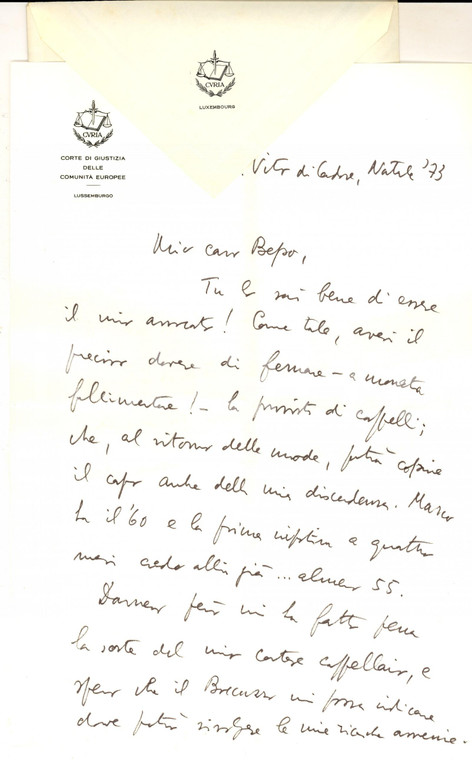 CVRIA
LUXEMBOURG
CVRIA
CORTE DI GIUSTIZIA
DELLE
COMUNITÀ EUROPEE
LUSSEMBURGO
Vito di Cadore, Natale '73
Mio caro Bepo,
Tu lo sai bene d'essere
il mio avvocato! Come tale, avevi il
preciso dovere di fermare – a moneta
fallimentare! – la provvista di cappelli;
che, al ritorno delle mode, potrà coprire
il capo anche della mia discendenza. Marco
ha il '60 e la prima nipotina a quattro
mesi credo abbia già ... almeno 55.
Davvero però mi ha fatto pena
la sorte del mio cortese cappellaio, e
spero che il mi possa indicare
dove potrò rivolgere le mie ricerche avvenire.